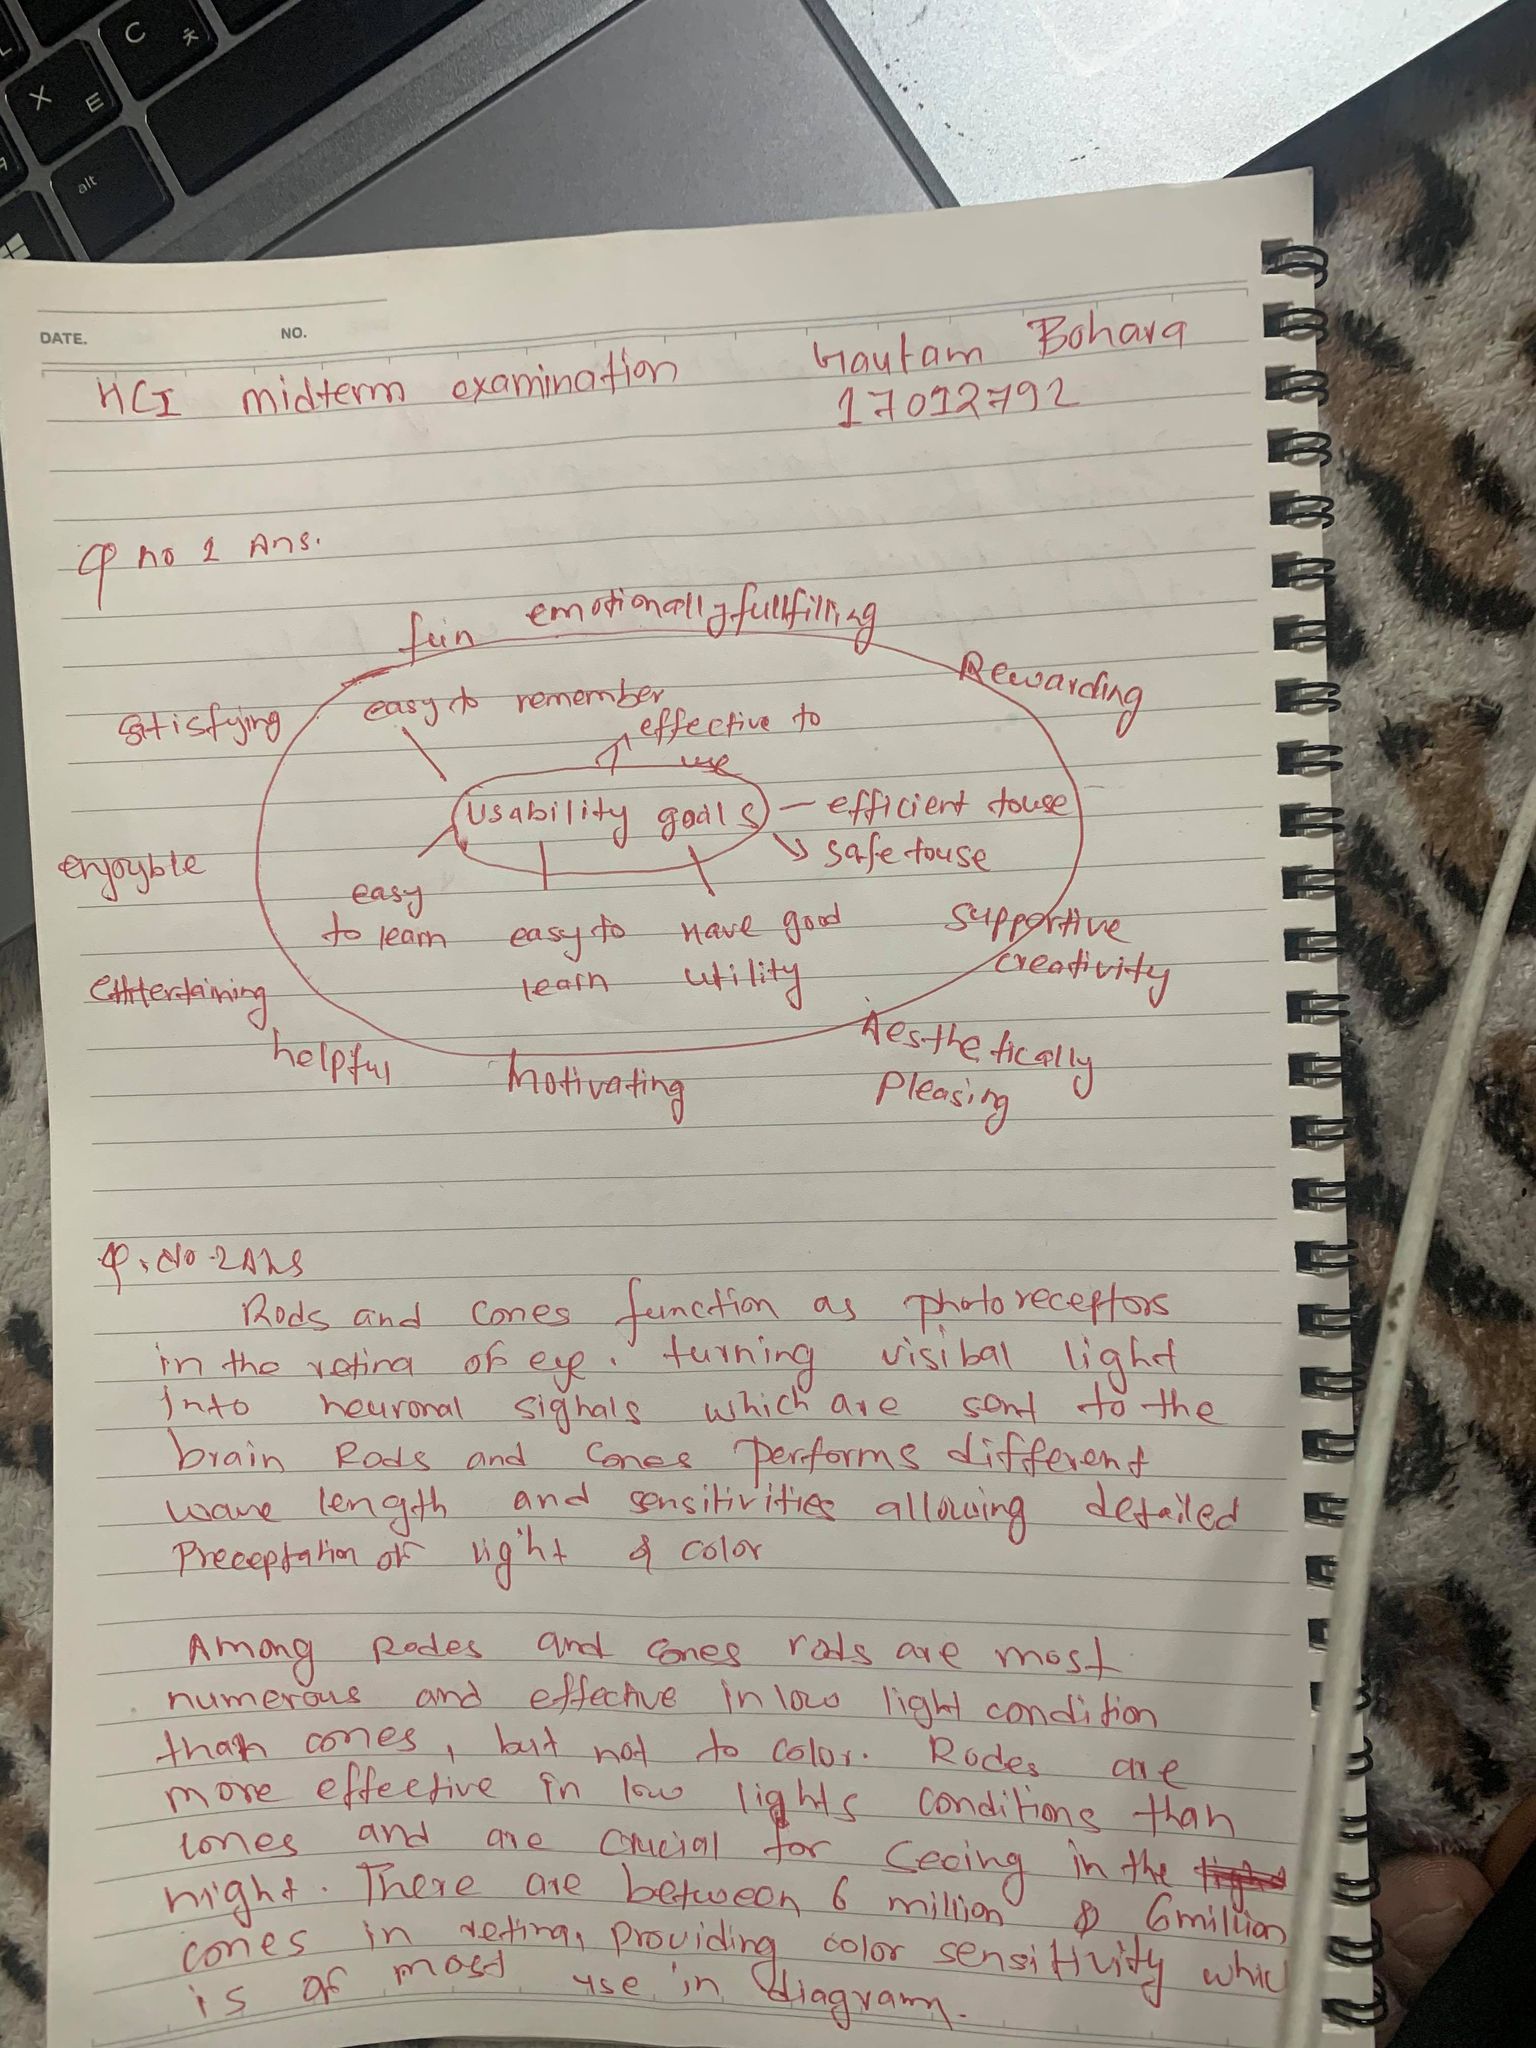 C ㅊ
X ㅌ
alt
DATE. NO.
HCI midterm examination
Gautam Bohara
17012792
Q no 1 Ans.
fun emotionally fullfilling
Rewarding
Satisfying
easy to remember
effective to
use
Usability goals
efficient to use
safe to use
enjoyble
easy
to learn
easy to
learn
Have good
utility
supportive
creativity
entertaining
helpful
Motivating
Aesthetically
Pleasing
Q. No. 2 Ans
Rods and cones function as photoreceptors
in the retina of eye. turning visibal light
into neuronal signals which are sent to the
brain Rods and cones performs different
wave length and sensitivities allowing detailed
Preceptation of light & color
Among Rodes and cones rods are most
numerous and effective in low light condition
than cones, but not to color. Rodes are
more effective in low lights conditions than
cones and are crucial for seeing in the
night. There are between 6 million & 6 million
cones in retina, providing color sensitivity whic
is of most use in diagram.